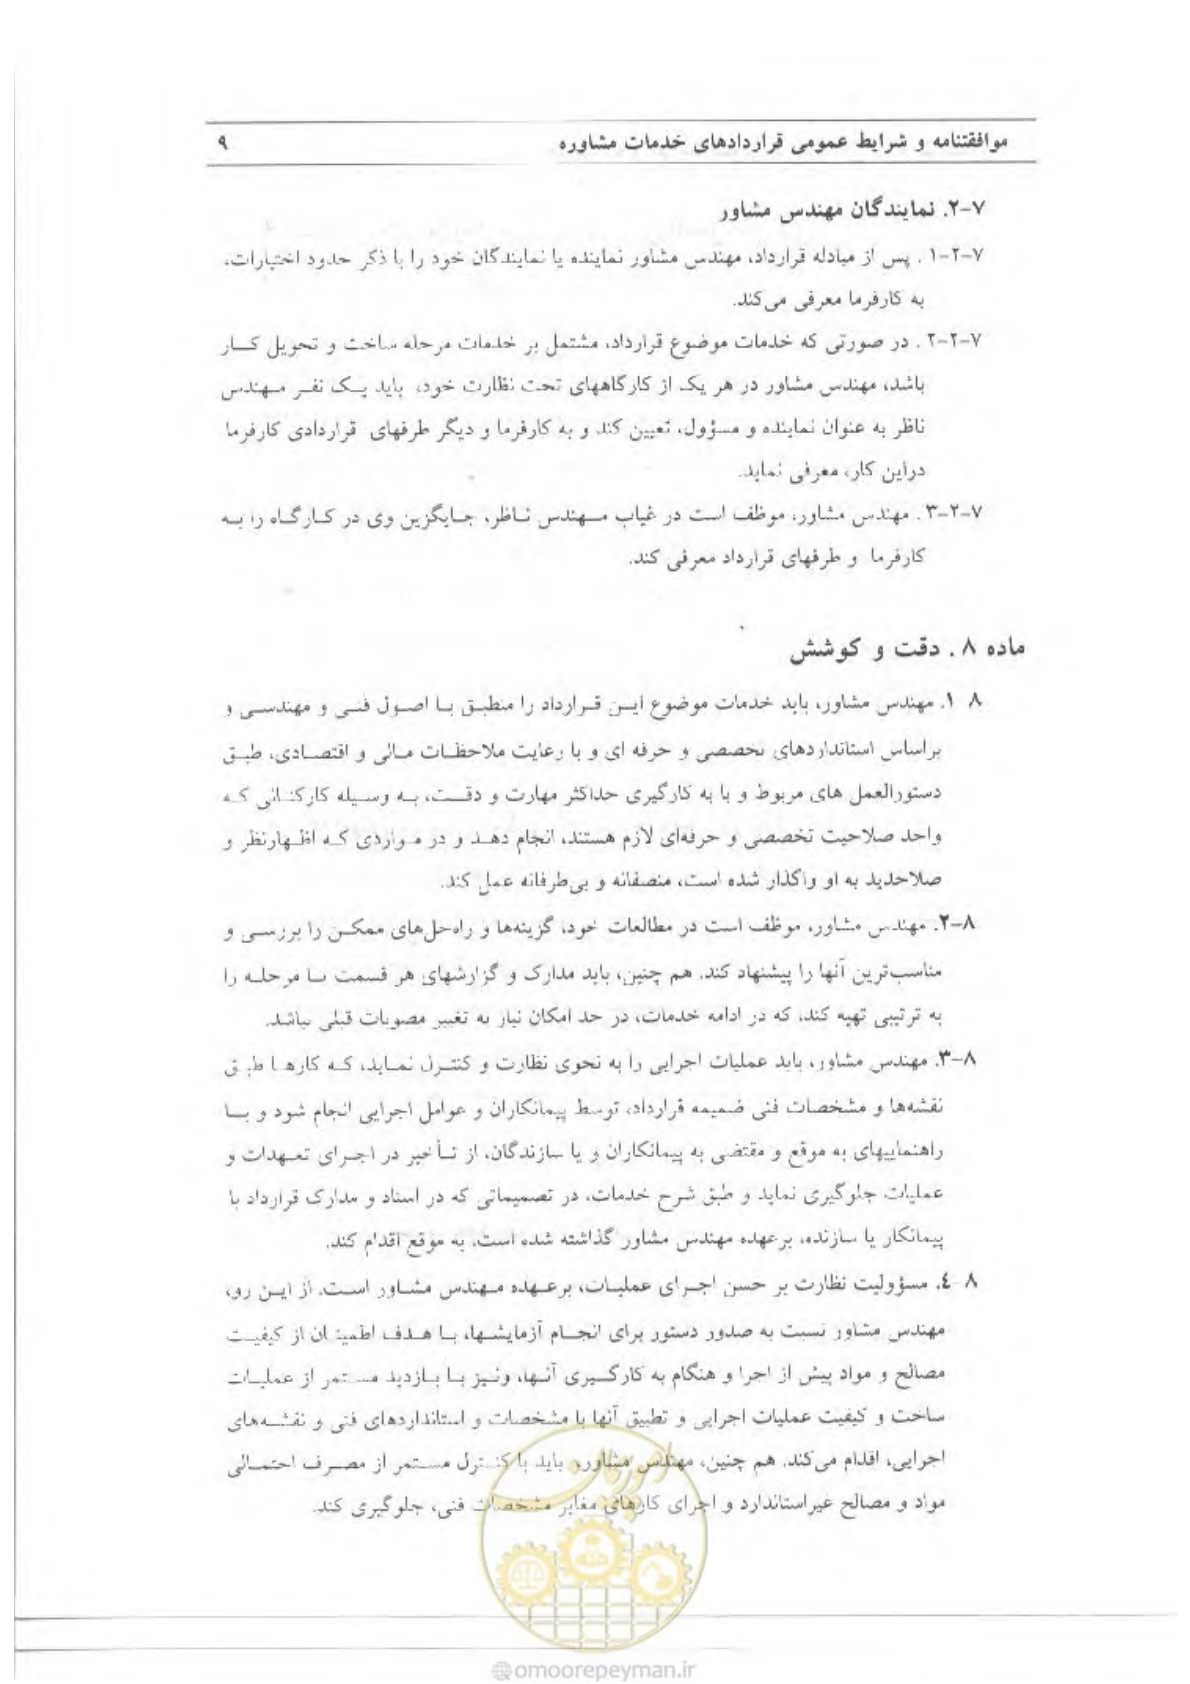 موافقتنامه و شرایط عمومی قراردادهای خدمات مشاوره ۹
۷-۲. نمایندگان مهندس مشاور
۷-۲-۱ . پس از مبادله قرارداد، مهندس مشاور نماینده یا نمایندگان خود را با ذکر حدود اختیارات،
به کارفرما معرفی می‌کند.
۷-۲-۲ . در صورتی که خدمات موضوع قرارداد، مشتمل بر خدمات مرحله ساخت و تحویل کار
باشد، مهندس مشاور در هر یک از کارگاههای تحت نظارت خود، باید یک نفر مهندس
ناظر به عنوان نماینده و مسؤول، تعیین کند و به کارفرما و دیگر طرفهای قراردادی کارفرما
دراین کار، معرفی نماید.
۷-۲-۳ . مهندس مشاور، موظف است در غیاب مهندس ناظر، جایگزین وی در کارگاه را به
کارفرما و طرفهای قرارداد معرفی کند.
ماده ۸ . دقت و کوشش
۸ ۱. مهندس مشاور، باید خدمات موضوع این قرارداد را منطبق با اصول فنی و مهندسی و
براساس استانداردهای تخصصی و حرفه ای و با رعایت ملاحظات مالی و اقتصادی، طبق
دستورالعمل های مربوط و با به کارگیری حداکثر مهارت و دقت، به وسیله کارکنانی که
واجد صلاحیت تخصصی و حرفه‌ای لازم هستند، انجام دهد و در مواردی که اظهارنظر و
صلاحدید به او واگذار شده است، منصفانه و بی‌طرفانه عمل کند.
۸-۲. مهندس مشاور، موظف است در مطالعات خود، گزینه‌ها و راه‌حل‌های ممکن را بررسی و
مناسب‌ترین آنها را پیشنهاد کند. هم چنین، باید مدارک و گزارشهای هر قسمت یا مرحله را
به ترتیبی تهیه کند، که در ادامه خدمات، در حد امکان نیاز به تغییر مصوبات قبلی نباشد.
۸-۳. مهندس مشاور، باید عملیات اجرایی را به نحوی نظارت و کنترل نماید، که کارها طبق
نقشه‌ها و مشخصات فنی ضمیمه قرارداد، توسط پیمانکاران و عوامل اجرایی انجام شود و با
راهنماییهای به موقع و مقتضی به پیمانکاران و یا سازندگان، از تأخیر در اجرای تعهدات و
عملیات جلوگیری نماید و طبق شرح خدمات، در تصمیماتی که در اسناد و مدارک قرارداد با
پیمانکار یا سازنده، برعهده مهندس مشاور گذاشته شده است، به موقع اقدام کند.
۸ ٤. مسؤولیت نظارت بر حسن اجرای عملیات، برعهده مهندس مشاور است. از این رو،
مهندس مشاور نسبت به صدور دستور برای انجام آزمایشها، با هدف اطمینان از کیفیت
مصالح و مواد پیش از اجرا و هنگام به کارگیری آنها، ونیز با بازدید مستمر از عملیات
ساخت و کیفیت عملیات اجرایی و تطبیق آنها با مشخصات و استانداردهای فنی و نقشه‌های
اجرایی، اقدام می‌کند. هم چنین، مهندس مشاور، باید با کنترل مستمر از مصرف احتمالی
مواد و مصالح غیراستاندارد و اجرای کارهای مغایر مشخصات فنی، جلوگیری کند.
امور پیمان
@omoorepeyman.ir